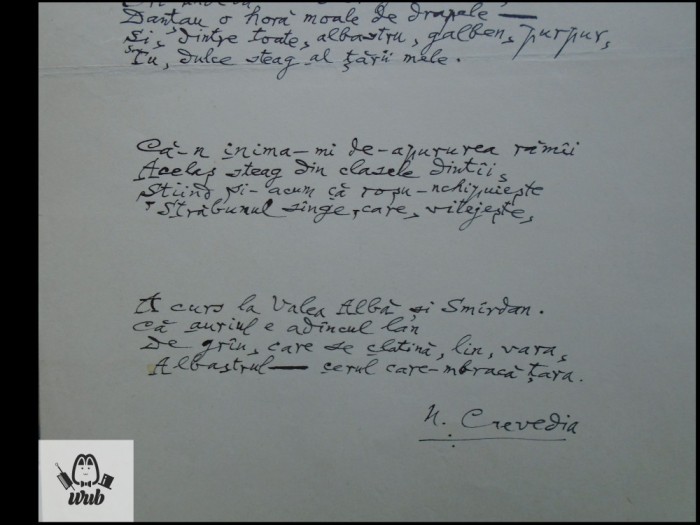 Danțau o horă moale de drapele —
Și, dintre toate, albastru, galben, purpur,
Tu, dulce steag al țării mele.
Că-n inima-mi de-apururea rămîi
Același steag din clasele dintîi,
Știind și-acum că roșu-nchipuiește
Străbunul sînge, care, vitejește,
A curs la Valea Albă și Smîrdan.
Că auriul e adîncul lan
De grîu, care se clatină, lin, vara,
Albastrul — cerul care-mbracă țara.
N. Crevedia
wub